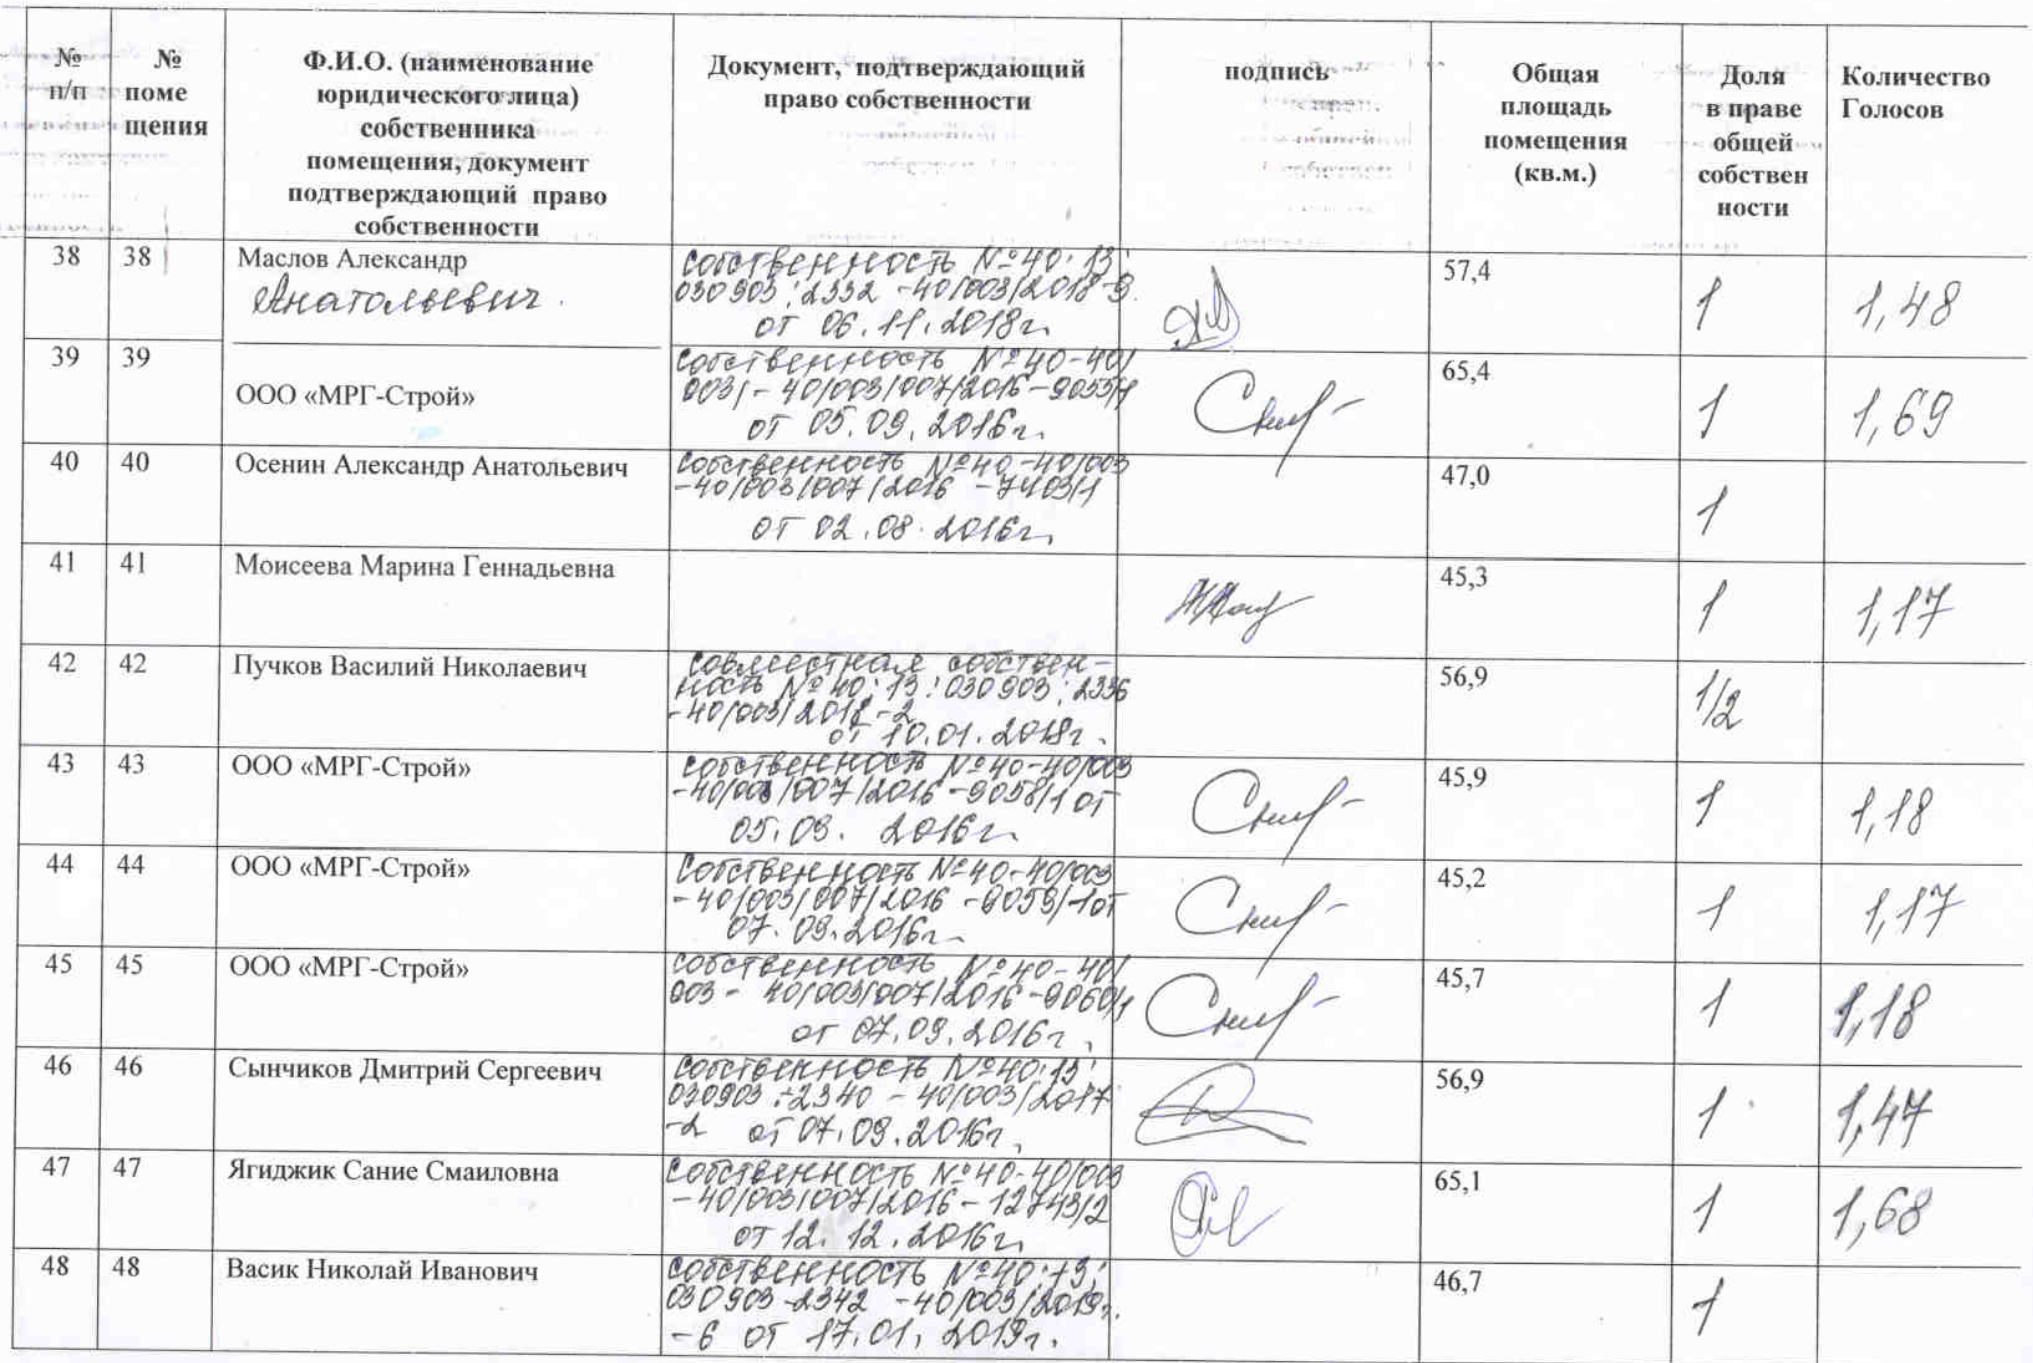 № п/п
№ поме щения
Ф.И.О. (наименование
юридического лица)
собственника
помещения, документ
подтверждающий право
собственности
Документ, подтверждающий
право собственности
подпись
Общая
площадь
помещения
(кв.м.)
Доля
в праве
общей
собствен
ности
Количество
Голосов
38 38 Маслов Александр
Анатольевич.
собственность №40:13:
030903:2332-40/003/2018-3.
от 06.11.2018г.
57,4 1 1,48
39 39 ООО «МРГ-Строй»
собственность №40-40/
003/-40/003/007/2016-9055/1
от 05.09.2016г.
65,4 1 1,69
40 40 Осенин Александр Анатольевич
собственность №40-40/003
-40/003/007/2016-7403/1
от 02.08.2016г.
47,0 1
41 41 Моисеева Марина Геннадьевна
45,3 1 1,17
42 42 Пучков Василий Николаевич
совместная собствен-
ность №40:13:030903:2336
-40/003/2018-2
от 10.01.2018г.
56,9 1/2
43 43 ООО «МРГ-Строй»
собственность №40-40/003
-40/003/007/2016-9058/1 от
05.09. 2016г.
45,9 1 1,18
44 44 ООО «МРГ-Строй»
Собственность №40-40/003
-40/003/007/2016-9059/1 от
07.09.2016г.
45,2 1 1,17
45 45 ООО «МРГ-Строй»
собственность №40-40/
003-40/003/007/2016-9060/1
от 07.09.2016г.
45,7 1 1,18
46 46 Сынчиков Дмитрий Сергеевич
собственность №40:13:
030903:2340-40/003/2017
-2 от 07.09.2016г.
56,9 1 1,47
47 47 Ягиджик Сание Смаиловна
собственность №40-40/003
-40/003/007/2016-12743/2
от 12.12.2016г.
65,1 1 1,68
48 48 Васик Николай Иванович
собственность №40:13:
030903-2342-40/003/2019г.
-6 от 17.01.2019г.
46,7 1